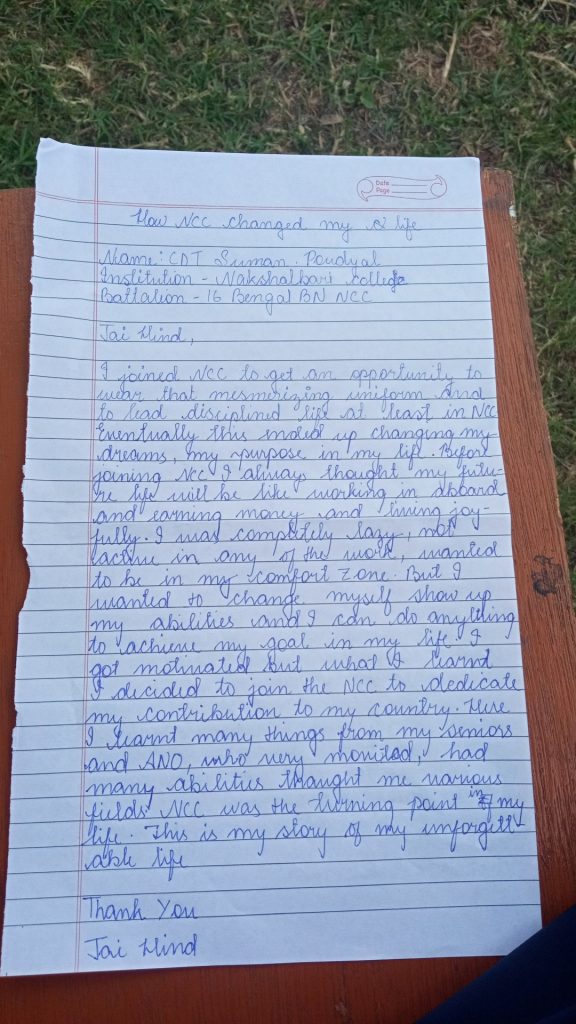 Date
Page
How NCC changed my life
Name: CDT Suman Poudyal
Institution - Nakshalbari College
Battalion - 16 Bengal BN NCC
Jai Hind,
I joined NCC to get an opportunity to
wear that mesmerizing uniform and
to lead disciplined life at least in NCC
Eventually this ended up changing my
dreams, my purpose in my life. Before
joining NCC I always thought my futu-
re life will be like working in aboard
and earning money and living joy-
fully. I was completely lazy, not
active in any of the work, wanted
to be in my comfort zone. But I
wanted to change myself show up
my abilities and I can do anything
to achieve my goal in my life. I
got motivated but what I learnt
I decided to join the NCC to dedicate
my contribution to my country. Here
I learnt many things from my seniors
and ANO, who very, had
many abilities thaught me various
fields NCC was the turning point in my
life. This is my story of my unforgett-
able life
Thank You
Jai Hind